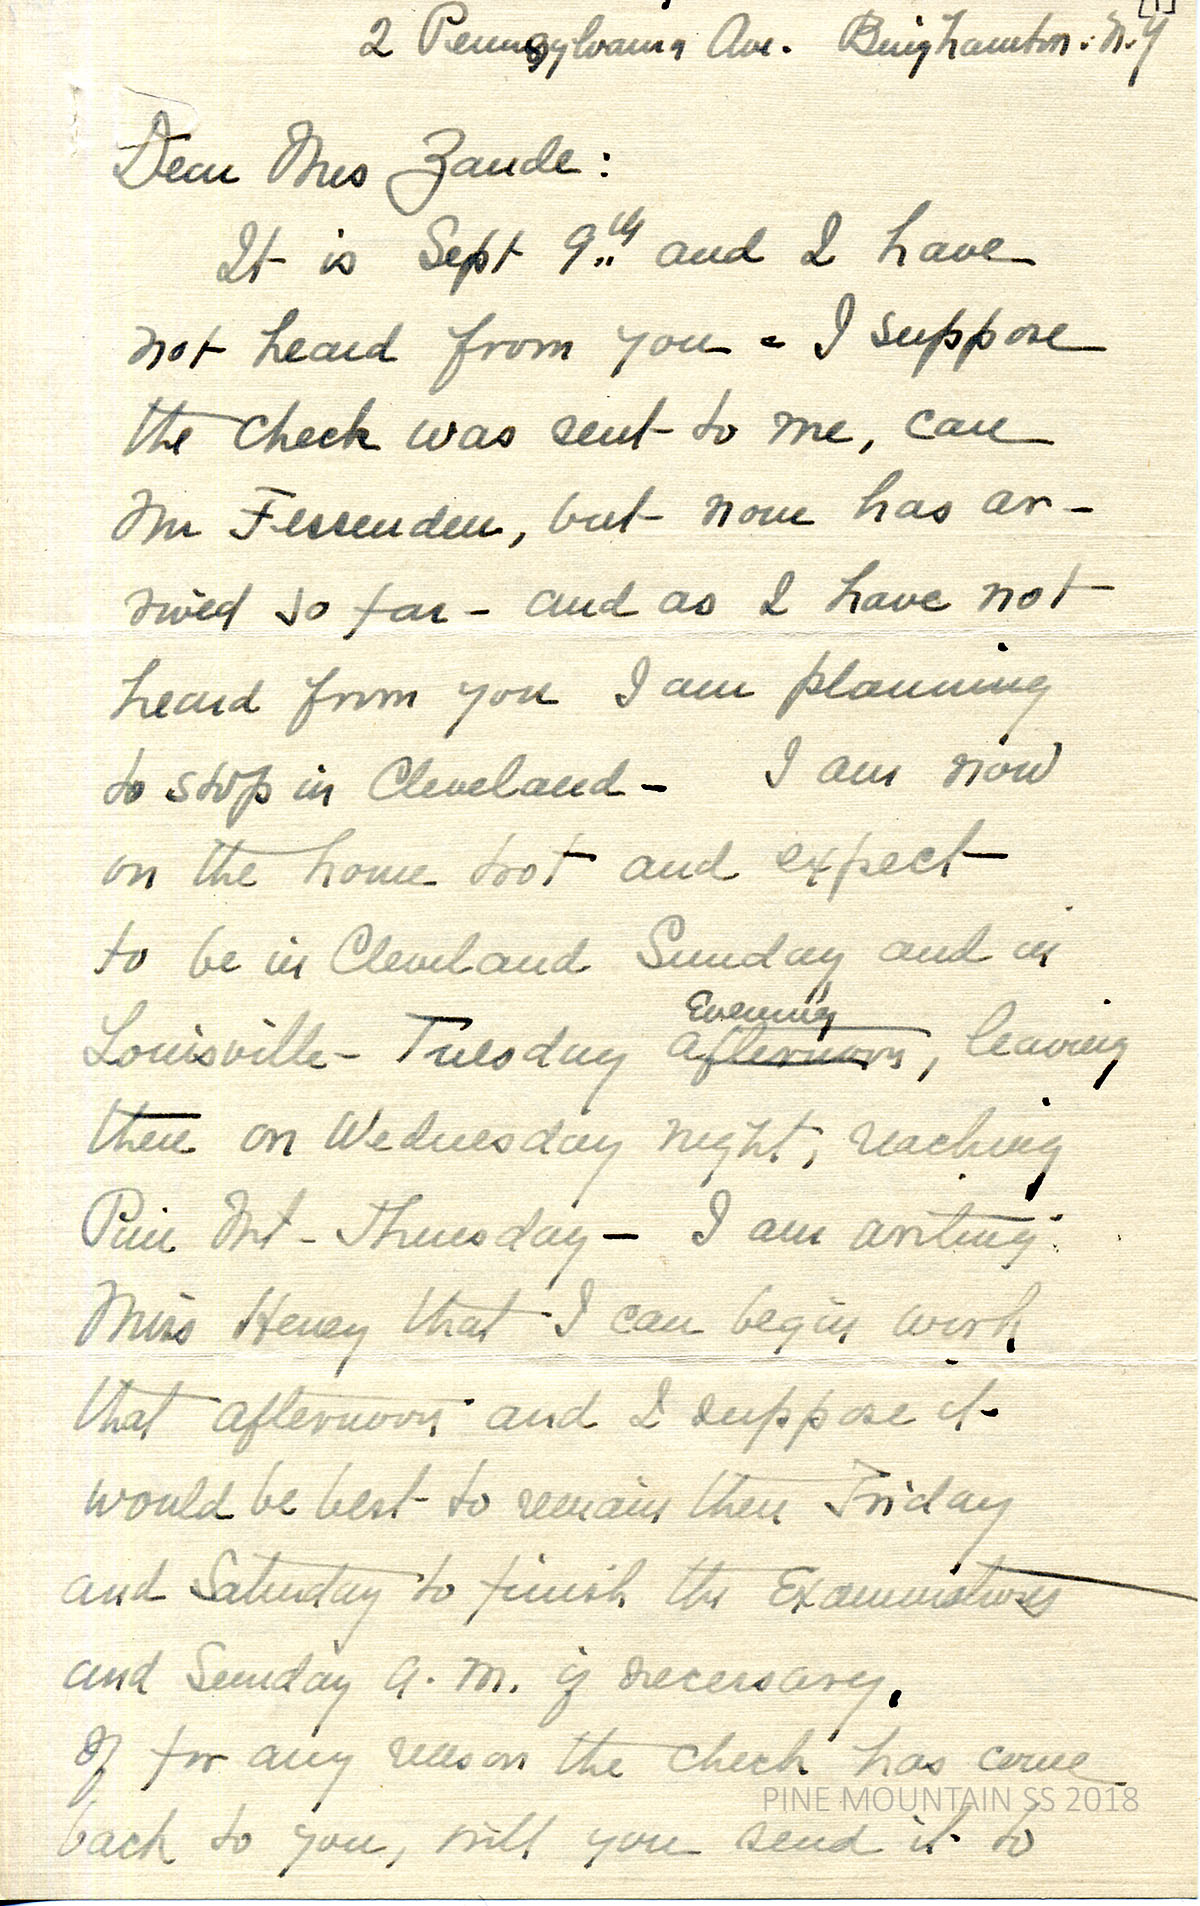 [1]
2 Pennsylvania Ave. Binghamton. N.Y
Dear Mrs Zande:
It is Sept 9th and I have
not heard from you - I suppose
the check was sent to me, care
Mr Fessenden, but none has ar-
rived so far - and as I have not
heard from you I am planning
to stop in Cleveland - I am now
on the home trot and expect
to be in Cleveland Sunday and in
Louisville - Tuesday afternoon Evening, leaving
there on Wednesday night, reaching
Pine Mt - Thursday - I am writing
Miss Heney that I can begin work
that afternoon and I suppose it
would be best to remain there Friday
and Saturday to finish the Examinations
and Sunday A.M. if necessary.
If for any reason the check has come
back to you, will you send it to
PINE MOUNTAIN SS 2018